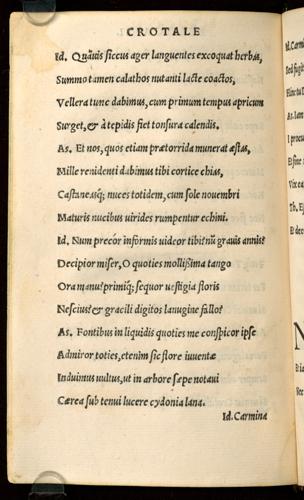 CROTALE
Id. Quãuis siccus ager languentes excoquat herbas,
Summo tamen calathos nutanti lacte coactos,
Vellera tunc dabimus, cum primum tempus apricum
Surget, & à tepidis fiet tonsura calendis.
As. Et nos, quos etiam prætorrida munerat æstas,
Mille renidenti dabimus tibi cortice chias,
Castaneasq; nuces totidem, cum sole nouembri
Maturis nucibus uirides rumpentur echini.
Id. Num precór informis uideor tibi? nũ grauis annis?
Decipior miser, O quoties mollißima tango
Ora manu? primiq; sequor uestigia floris
Nescius? & gracili digitos lanugine fallo?
As. Fontibus in liquidis quoties me conspicor ipse
Admiror toties, etenim sic flore iuuentæ
Induimus uultus, ut in arbore sæpe notaui
Cærea sub tenui lucere cydonia lana.
Id. Carmina
M. Carmi
Sed fugit
Th. Ej